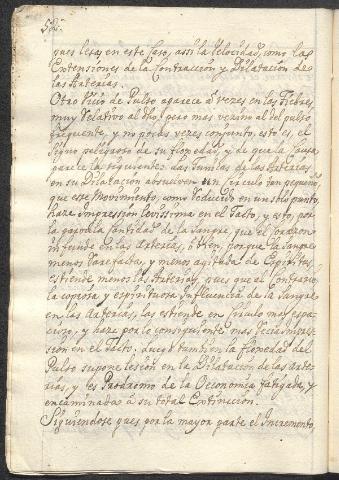 pues lesas en este Caso, assi la Velocidad, como las
Extensiones de la Contraccion y Dilatacion de
las Arterias.
Otro vicio de Pulso aparece à vezes en las Fiebres,
muy relativo al dho, pero mas vezino al del pulso
frequente, y no pocas vezes conjunto, esto es, el
signo peligroso de su floxedad, y de que la causa
parece la siguiente: las Tunicas de las Arterias
en su Dilatacion absuelven un Circulo tan pequeño,
que este Movimiento, como reducido en un solo punto,
haze Impression levissima en el Tacto, y esto, por
la poca Cantidad de la Sangre, que el Corazon
infunde en las Arterias, ò bien, porque la Sangre
menos rarefacta, y menos agitada de Espiritus,
estiende menos la Arteria, pues que al Contrario
la copiosa y espirituosa Influencia de la Sangre
en las Arterias, las estiende en Circulo mas espa-
cioso, y haze por lo consiguiente mas recia Impres-
sion en el Tacto. Luego tambien la floxedad del
Pulso supone lesion en la Dilatacion de las Arte-
rias, y es Prodromo de la Oeconomia fatigada, y
encaminada à su total Extinccion.
Siguiendose pues por la mayor parte el Incremento